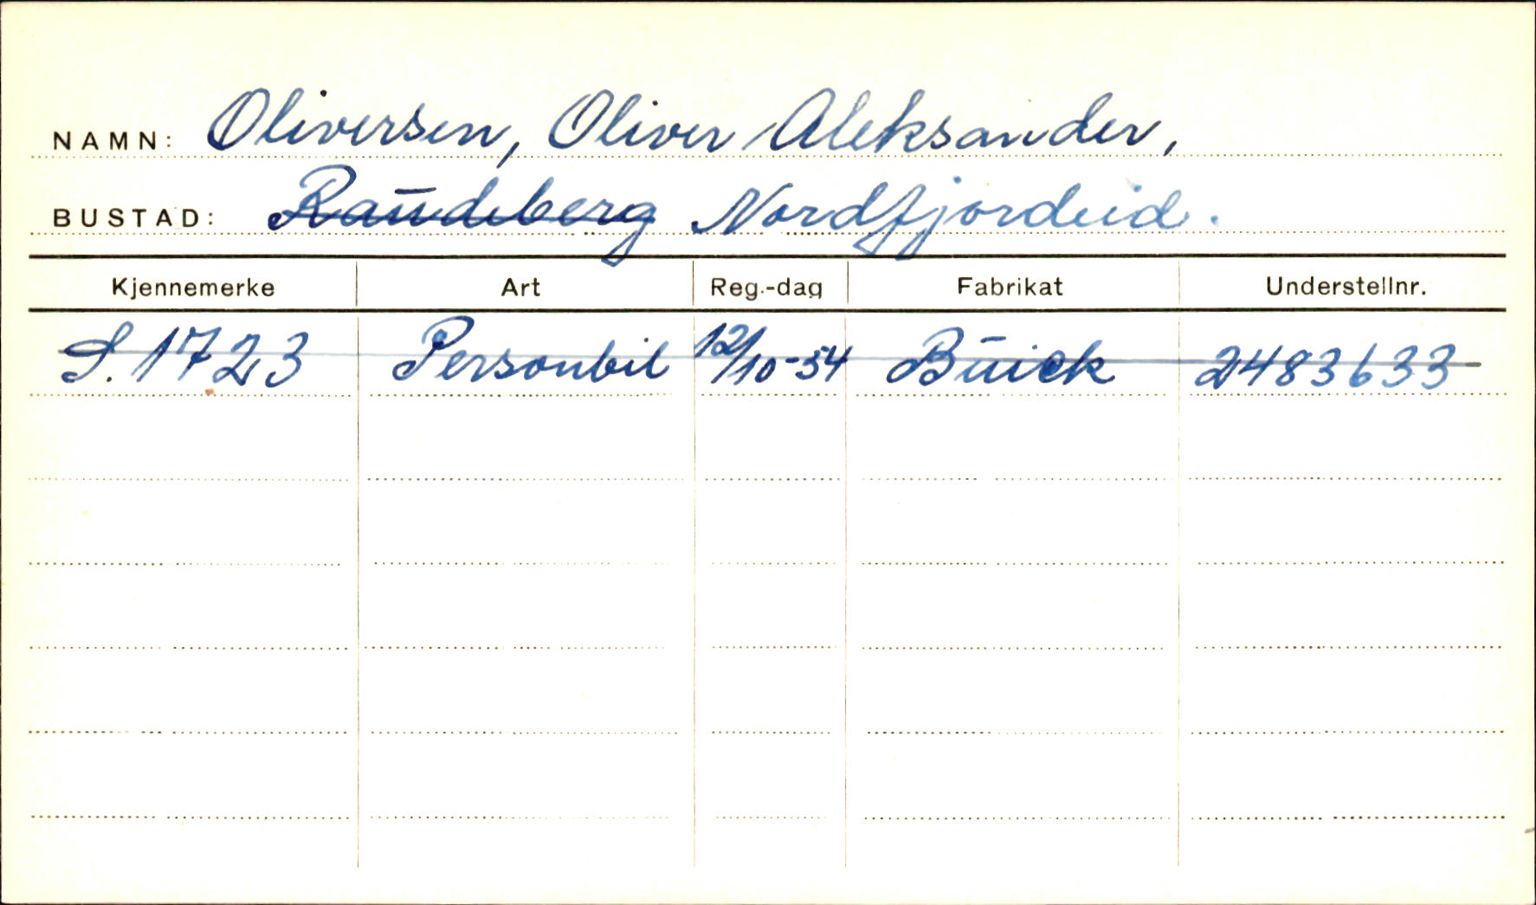 NAMN: Oliversen, Oliver Aleksander,
BUSTAD: Raudeberg Nordfjordeid.
Kjennemerke Art Reg.-dag Fabrikat Understellnr.
S. 1723 Personbil 12/10-54 Buick 2483633